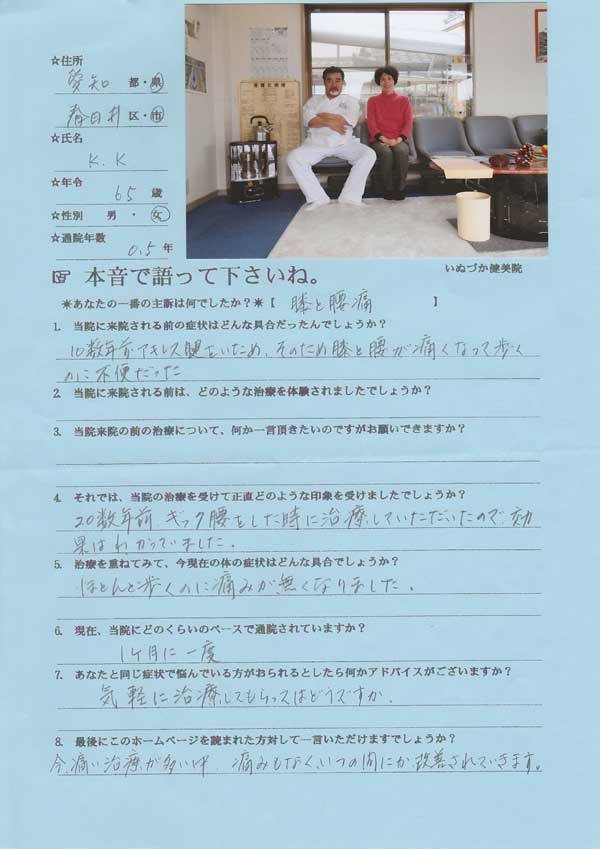 ☆住所
愛知 都・県
春日井 区・市
☆氏名
K.K
☆年令
65 歳
☆性別 男・女
☆通院年数
0.5 年
☞ 本音で語って下さいね。
いぬづか健美院
✳あなたの一番の主訴は何でしたか?✳【 膝と腰痛 】
1. 当院に来院される前の症状はどんな具合だったんでしょうか?
10数年前アキレス腱をいため、そのため膝と腰が痛くなって歩く
のに不便だった
2. 当院に来院される前は、どのような治療を体験されましたでしょうか?
3. 当院来院の前の治療について、何か一言頂きたいのですがお願いできますか?
4. それでは、当院の治療を受けて正直どのような印象を受けましたでしょうか?
20数年前、ギック腰をした時に治療していただいたので、効
果はわかっていました。
5. 治療を重ねてみて、今現在の体の症状はどんな具合でしょうか?
ほとんど歩くのに痛みが無くなりました。
6. 現在、当院にどのくらいのペースで通院されていますか?
1ヶ月に一度
7. あなたと同じ症状で悩んでいる方がおられるとしたら何かアドバイスがございますか?
気軽に治療してもらってはどうですか
8. 最後にこのホームページを読まれた方対して一言いただけますでしょうか?
今、痛い治療が多い中、痛みもなく、いつの間にか改善されていきます。